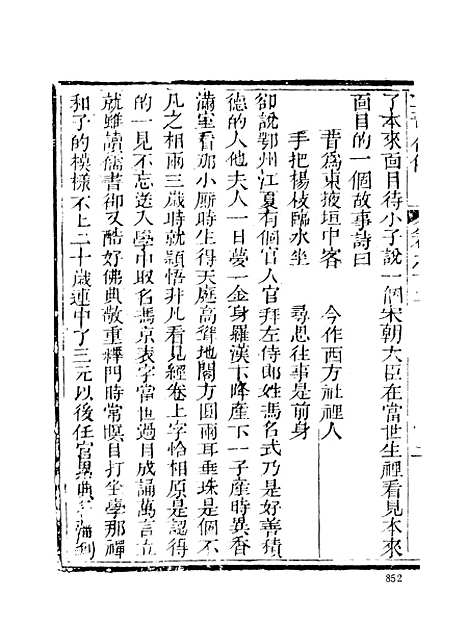 了本來面目待小子說一個宋朝大臣在當世生裡看見本來
面目的一個故事詩曰
昔爲東掖垣中客　今作西方社裡人
手把楊枝臨水坐　尋思往事是前身
卻說鄂州江夏有個官人官拜左侍郎姓馮名式乃是好善積
德的人他夫人一日夢一金身羅漢下降產下一子產時異香
滿室看那小廝時生得天庭高聳地閣方圓兩耳垂珠是個不
凡之相兩三歲時就穎悟非凡看見經卷上字恰相原是認得
的一見不忘送入學中取名馮京表字當世過目成誦萬言立
就雖讀儒書卻又酷好佛典敬重釋門時常瞑目打坐學那禪
和子的模樣不上二十歲連中了三元以後任官
852